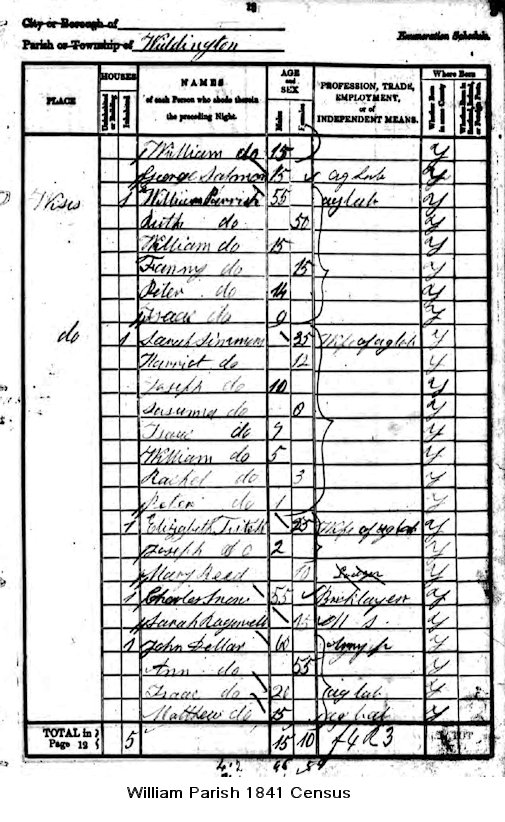 12
City or Borough of
Parish or Township of Widdington
Enumeration Schedule.
PLACE
HOUSES
Uninhabited or Building
Inhabited
NAMES
of each Person who abode therein the preceding Night.
AGE and SEX
Males
Females
PROFESSION, TRADE, EMPLOYMENT, or of INDEPENDENT MEANS.
Where Born
Whether Born in same County
Whether Born in Scotland, Ireland, or Foreign Parts.
William do 15 y
George Salmon 15 ag Lab y
1 William Parrish 55 ag lab y
Ruth do 50 y
William do 15 y
Fanny do 15 y
Peter do 14 y
Isaac do 9 y
do 1 Sarah Simmons 35 Wife of ag lab y
Harriet do 12 y
Joseph do 10 y
Susanna do 8 y
Isaac do 7 y
William do 5 y
Rachel do 3 y
Peter do 1 y
1 Elizabeth 25 Wife of ag lab y
Joseph do 2 y
Mary Reed y
1 Charles 55 Bricklayer y
Sarah F. S. y
1 John Dellar 60 Army p y
Ann do 55 y
Isaac do 20 ag lab y
Matthew do 15 ag lab y
TOTAL in Page 12 5 15 10
William Parish 1841 Census